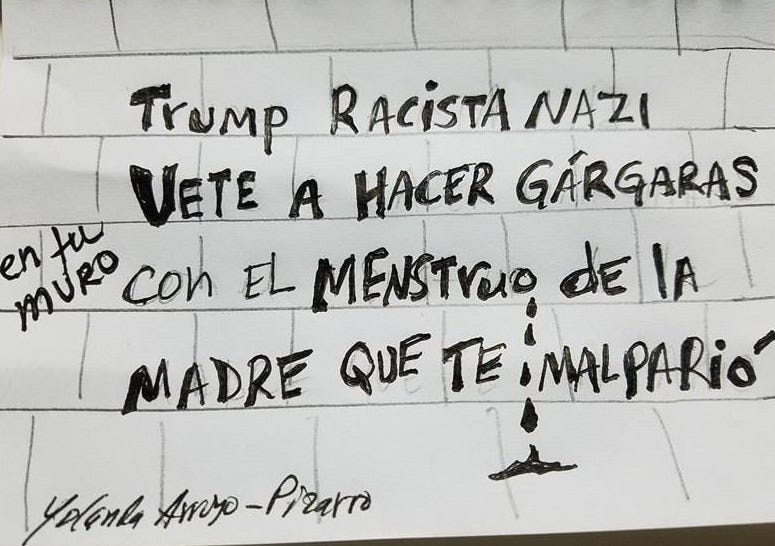 Trump RACISTA NAZI
VETE A HACER GÁRGARAS
en tu
MURO
con EL MENSTruo dE lA
MADRE QUE TE MALPARIÓ
Yolanda Arroyo-Pizarro